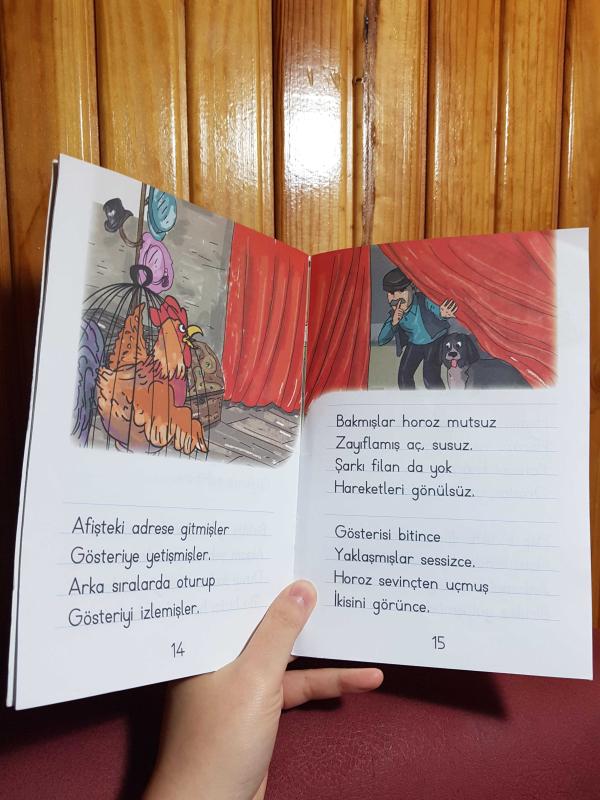 Afişteki adrese gitmişler
Gösteriye yetişmişler.
Arka sıralarda oturup
Gösteriyi izlemişler.
14
Bakmışlar horoz mutsuz
Zayıflamış aç, susuz.
Şarkı filan da yok
Hareketleri gönülsüz.
Gösterisi bitince
Yaklaşmışlar sessizce.
Horoz sevinçten uçmuş
İkisini görünce.
15